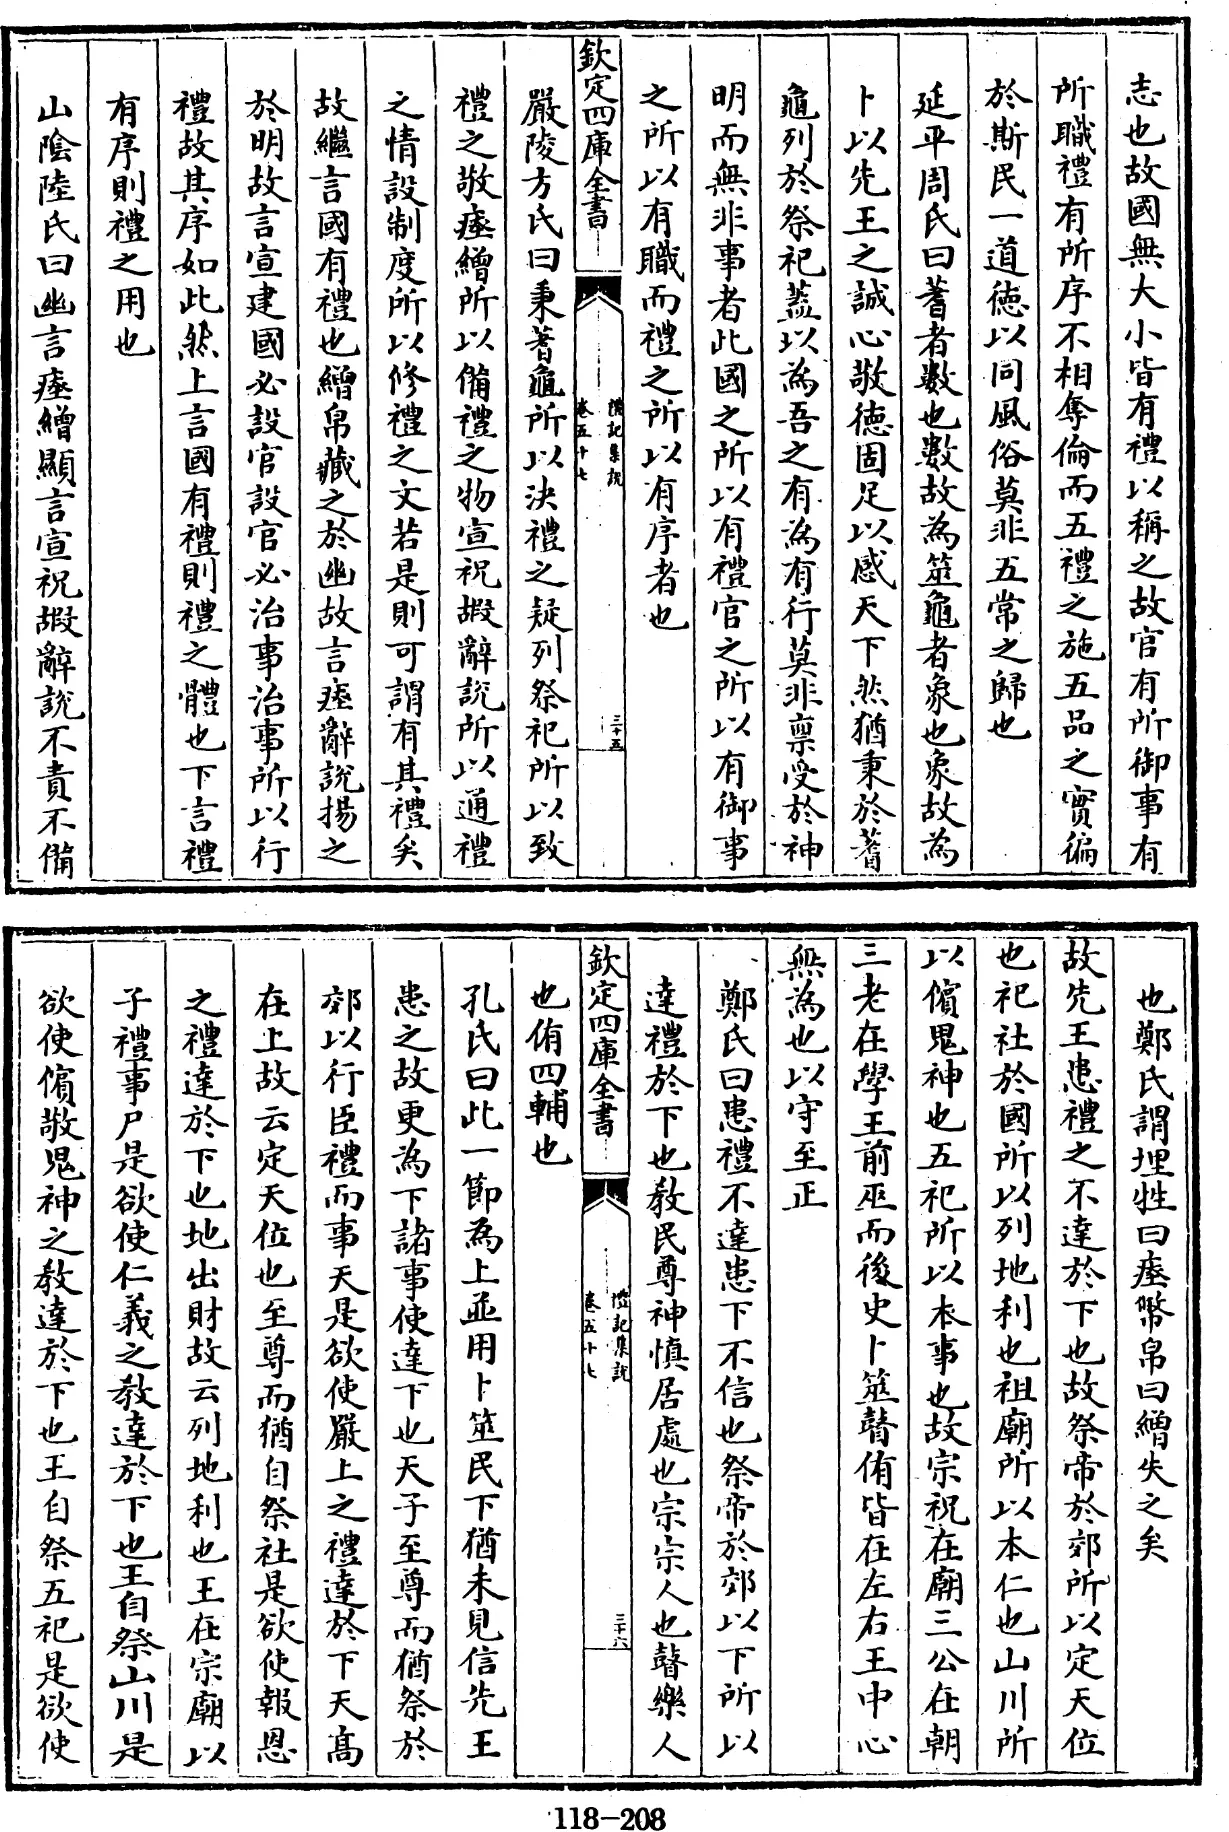 志也故國無大小皆有禮以稱之故官有所御事有
所職禮有所序不相奪倫而五禮之施五品之實徧
於斯民一道徳以同風俗莫非五常之歸也
延平周氏曰蓍者數也數故為筮龜者象也象故為
卜以先王之誠心敬徳固足以感天下然猶秉於蓍
龜列於祭祀葢以為吾之有為有行莫非禀受於神
明而無非事者此國之所以有禮官之所以有御事
之所以有職而禮之所以有序者也
欽定四庫全書
禮記集說
卷五十七
三十五
嚴陵方氏曰秉蓍龜所以決禮之疑列祭祀所以致
禮之敬瘞繒所以備禮之物宣祝嘏辭說所以通禮
之情設制度所以修禮之文若是則可謂有其禮矣
故繼言國有禮也繒帛藏之於幽故言瘞辭說揚之
於明故言宣建國必設官設官必治事治事所以行
禮故其序如此然上言國有禮則禮之體也下言禮
有序則禮之用也
山陰陸氏曰幽言瘞繒顯言宣祝嘏辭說不責不備
也鄭氏謂埋牲曰瘞幣帛曰繒失之矣
故先王患禮之不達於下也故祭帝於郊所以定天位
也祀社於國所以列地利也祖廟所以本仁也山川所
以儐鬼神也五祀所以本事也故宗祝在廟三公在朝
三老在學王前巫而後史卜筮瞽侑皆在左右王中心
無為也以守至正
鄭氏曰患禮不達患下不信也祭帝於郊以下所以
達禮於下也教民尊神慎居處也宗宗人也瞽樂人
也侑四輔也
欽定四庫全書
禮記集說
卷五十七
三十六
孔氏曰此一節為上並用卜筮民下猶未見信先王
患之故更為下諸事使達下也天子至尊而猶祭於
郊以行臣禮而事天是欲使嚴上之禮達於下天髙
在上故云定天位也至尊而猶自祭社是欲使報恩
之禮達於下也地出財故云列地利也王在宗廟以
子禮事尸是欲使仁義之教達於下也王自祭山川是
欲使儐敬鬼神之教達於下也王自祭五祀是欲使
118-208